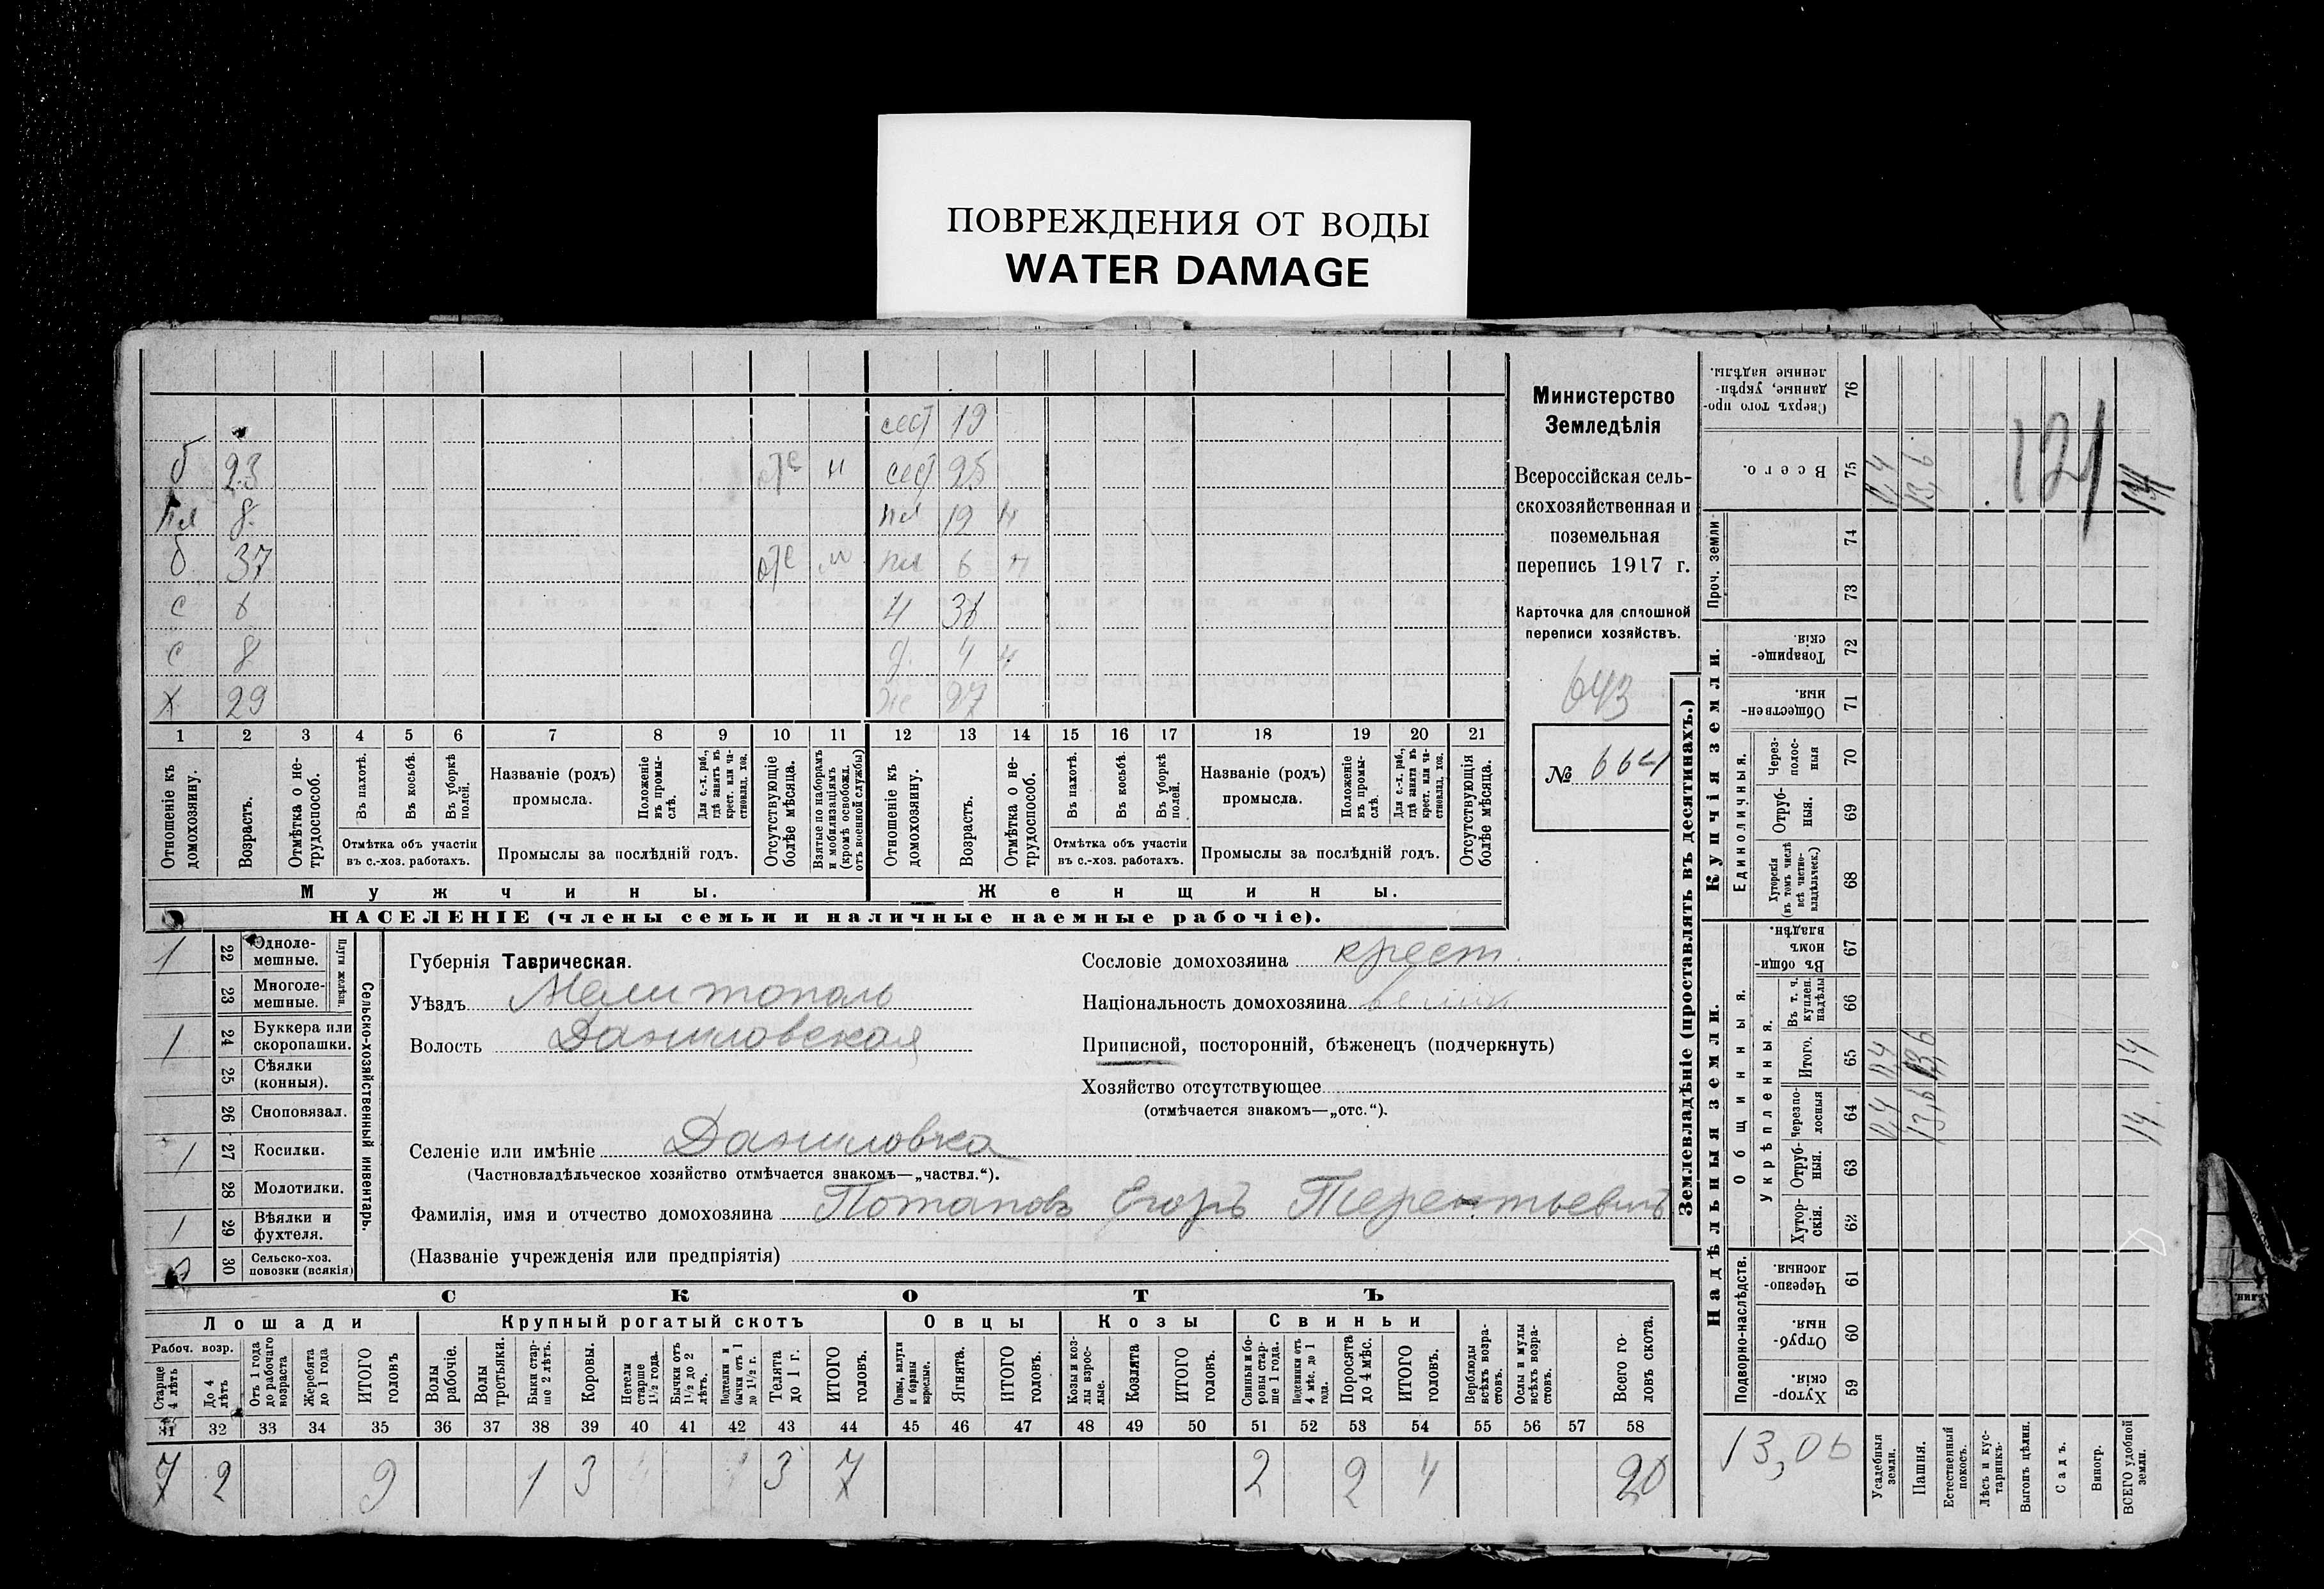 ПОВРЕЖДЕНИЯ ОТ ВОДЫ
WATER DAMAGE
сест 19
б 23 отс н сест 25
пл 8 пл 19 н
б 37 отс пл 6 н
с 8
Х 29 же 27
1 2 3 4 5 6 7 8 9 10 11 12 13 14 15 16 17 18 19 20 21
Отношеніе къ домохозяину.
Возрастъ.
Отмѣтка о не-трудоспособ.
Въ пахотѣ.
Въ косьбѣ.
Въ уборкѣ полей.
Отмѣтка объ участіи
въ с.-хоз. работахъ.
Названіе (родъ)
промысла.
Положеніе въ промы-слѣ.
Для с.-х. раб., гдѣ занятъ въ крест. или ча-стновлад. хоз.
Промыслы за послѣдній годъ.
Отсутствующіе болѣе мѣсяца.
Взятые по наборамъ и мобилизаціямъ (кромѣ освобожд. отъ военной службы)
Отношеніе къ домохозяину.
Возрастъ.
Отмѣтка о не-трудоспособ.
Въ пахотѣ.
Въ косьбѣ.
Въ уборкѣ полей.
Отмѣтка объ участіи
въ с.-хоз. работахъ.
Названіе (родъ)
промысла.
Положеніе въ промы-слѣ.
Для с.-х. раб., гдѣ занята въ крест. или ча-стновлад. хоз.
Промыслы за послѣдній годъ.
Отсутствующія болѣе мѣсяца.
Мужчины. Женщины.
НАСЕЛЕНІЕ (члены семьи и наличные наемные рабочіе).
Министерство
Земледѣлія
Всероссійская сель-
скохозяйственная и
поземельная
перепись 1917 г.
Карточка для сплошной
переписи хозяйствъ.
643
№ 664
Сельско-хозяйственный инвентарь.
Плуги желѣзн.
1 22 Одноле-мешные.
23 Многоле-мешные.
1 24 Буккера или скоропашки.
25 Сѣялки (конныя).
26 Сноповязал.
1 27 Косилки.
28 Молотилки.
1 29 Вѣялки и фухтеля.
30 Сельско-хоз. повозки (всякія)
Губернія Таврическая.
Уѣздъ Мелитополь
Волость Даниловская
Сословіе домохозяина крест.
Національность домохозяина велик
Приписной, посторонній, бѣженецъ (подчеркнуть)
Хозяйство отсутствующее
(отмѣчается знакомъ—„отс.“).
Селеніе или имѣніе Даниловка
(Частновладѣльческое хозяйство отмѣчается знакомъ—„частвл.“).
Фамилія, имя и отчество домохозяина Потаповъ Егоръ Терентьевичъ
(Названіе учрежденія или предпріятія)
СКОТЪ
Лошади Крупный рогатый скотъ Овцы Козы Свиньи
Рабоч. возр.
Старше 4 лѣтъ
До 4 лѣтъ
Отъ 1 года до рабочаго возраста
Жеребята до 1 года
ИТОГО головъ
Волы рабочіе.
Волы третьяки.
Быки стар-ше 2 лѣтъ.
Коровы.
Нетели старше 1½ года.
Бычки отъ 1½ до 2 лѣтъ.
Подтелки и бычки отъ 1 до 1½ г.
Телята до 1 г.
ИТОГО головъ.
Овцы, валухи и бараны взрослые.
Ягнята.
ИТОГО головъ.
Козы и коз-лы взрос-лые.
Козлята
ИТОГО головъ.
Свиньи и бо-ровы стар-ше 1 года.
Подсвинки отъ 4 мѣс. до 1 года.
Поросята до 4 мѣс.
ИТОГО головъ.
Верблюды всѣхъ возра-стовъ.
Ослы и мулы всѣхъ возра-стовъ.
Всего го-ловъ скота.
31 32 33 34 35 36 37 38 39 40 41 42 43 44 45 46 47 48 49 50 51 52 53 54 55 56 57 58
7 2 9 1 3 3 7 2 2 4 20
Землевладѣніе (проставлять въ десятинахъ.)
Надѣльныя земли.
Купчія земли.
Проч. земли.
Сверхъ того про-данные, укрѣп-ленные надѣлы. 76
Всего. 75 0,4 13,6
74
73
Товарище-скія. 72
Обществен-ныя. 71
Единоличныя.
Через-полос-ныя 70
Отруб-ныя. 69
Хуторскія (въ томъ числѣ всѣ частно-владѣльческ.) 68
Общинныя.
Въ общи-номъ владѣн. 67
Укрѣпленныя.
Въ т. ч. куплен. надѣлы 66
Итого. 65 0,4 13,6 14
Черезпо-лосныя 64 0,4 13,6 14
Отруб-ныя. 63
Хутор-скія. 62
Подворно-наслѣдств.
Черезпо-лосныя 61
Отруб-ныя. 60
Хутор-скія. 59
121
13,06
Усадебныя земли.
Пашня.
Естественный покосъ.
Лѣсъ и кус-тарникъ.
Выгонъ цѣлин.
Садъ.
Виногр.
ВСЕГО удобной земли.